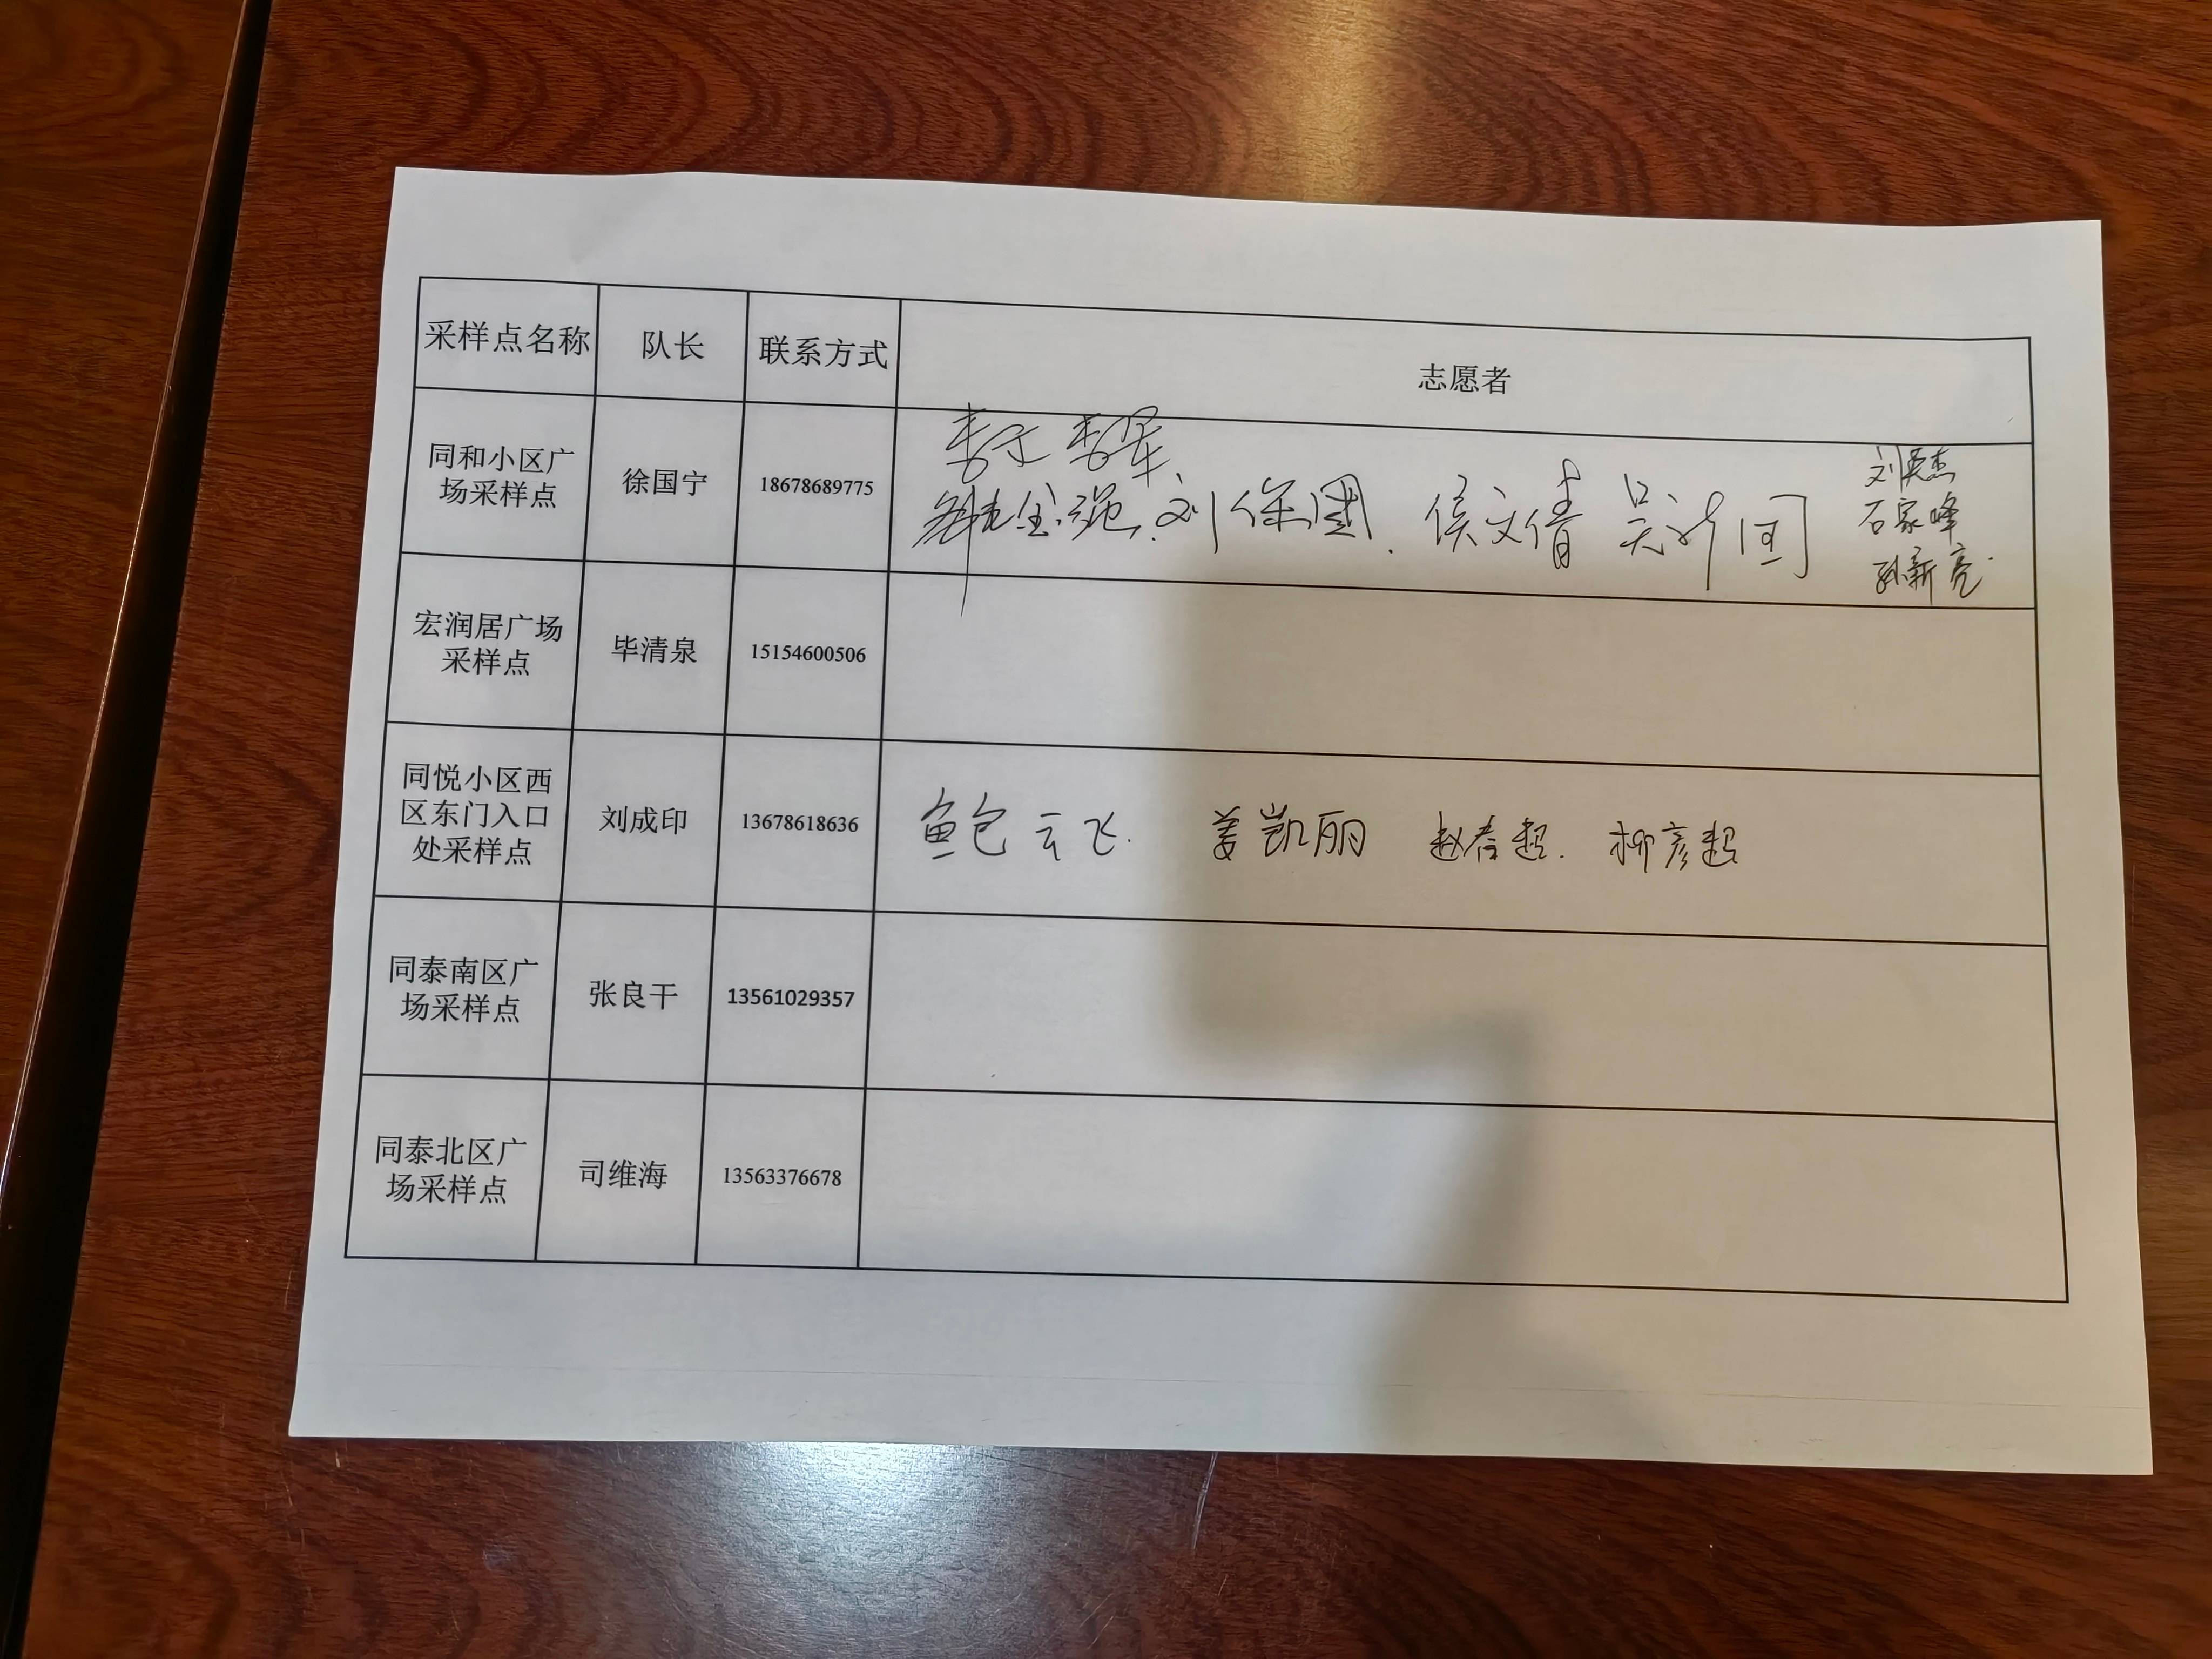 采样点名称 队长 联系方式 志愿者
同和小区广
场采样点
徐国宁
18678689775
刘保国 侯文倩
刘英杰
石家峰
孙新亮
宏润居广场
采样点
毕清泉
15154600506
同悦小区西
区东门入口
处采样点
刘成印
13678618636
鲍云飞. 姜凯丽 赵春超. 柳彦超
同泰南区广
场采样点
张良干
13561029357
同泰北区广
场采样点
司维海
13563376678